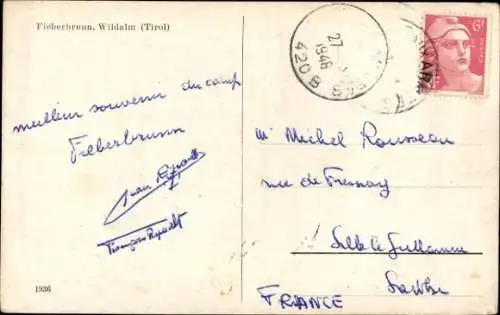 Fieberbrunn, Wildalm (Tirol)
meilleur souvenir du camp
Fieberbrunn
Jean
François
1936
27
1946
420 B
6F
Mr Michel Rousseau
rue de Fresnay
Sillé le Guillaume
Sarthe
FRANCE